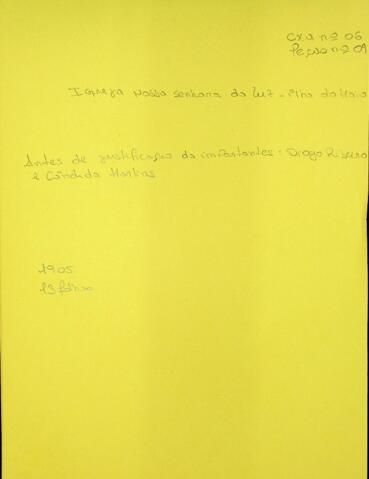 cxa nº 06
Peças nº 01
Igreja Nossa Senhora da Luz - Ilha do Maio
Antes de justificação da infantantes: Diogo Ribeiro
e Cândida Martins
1905
13 folhas